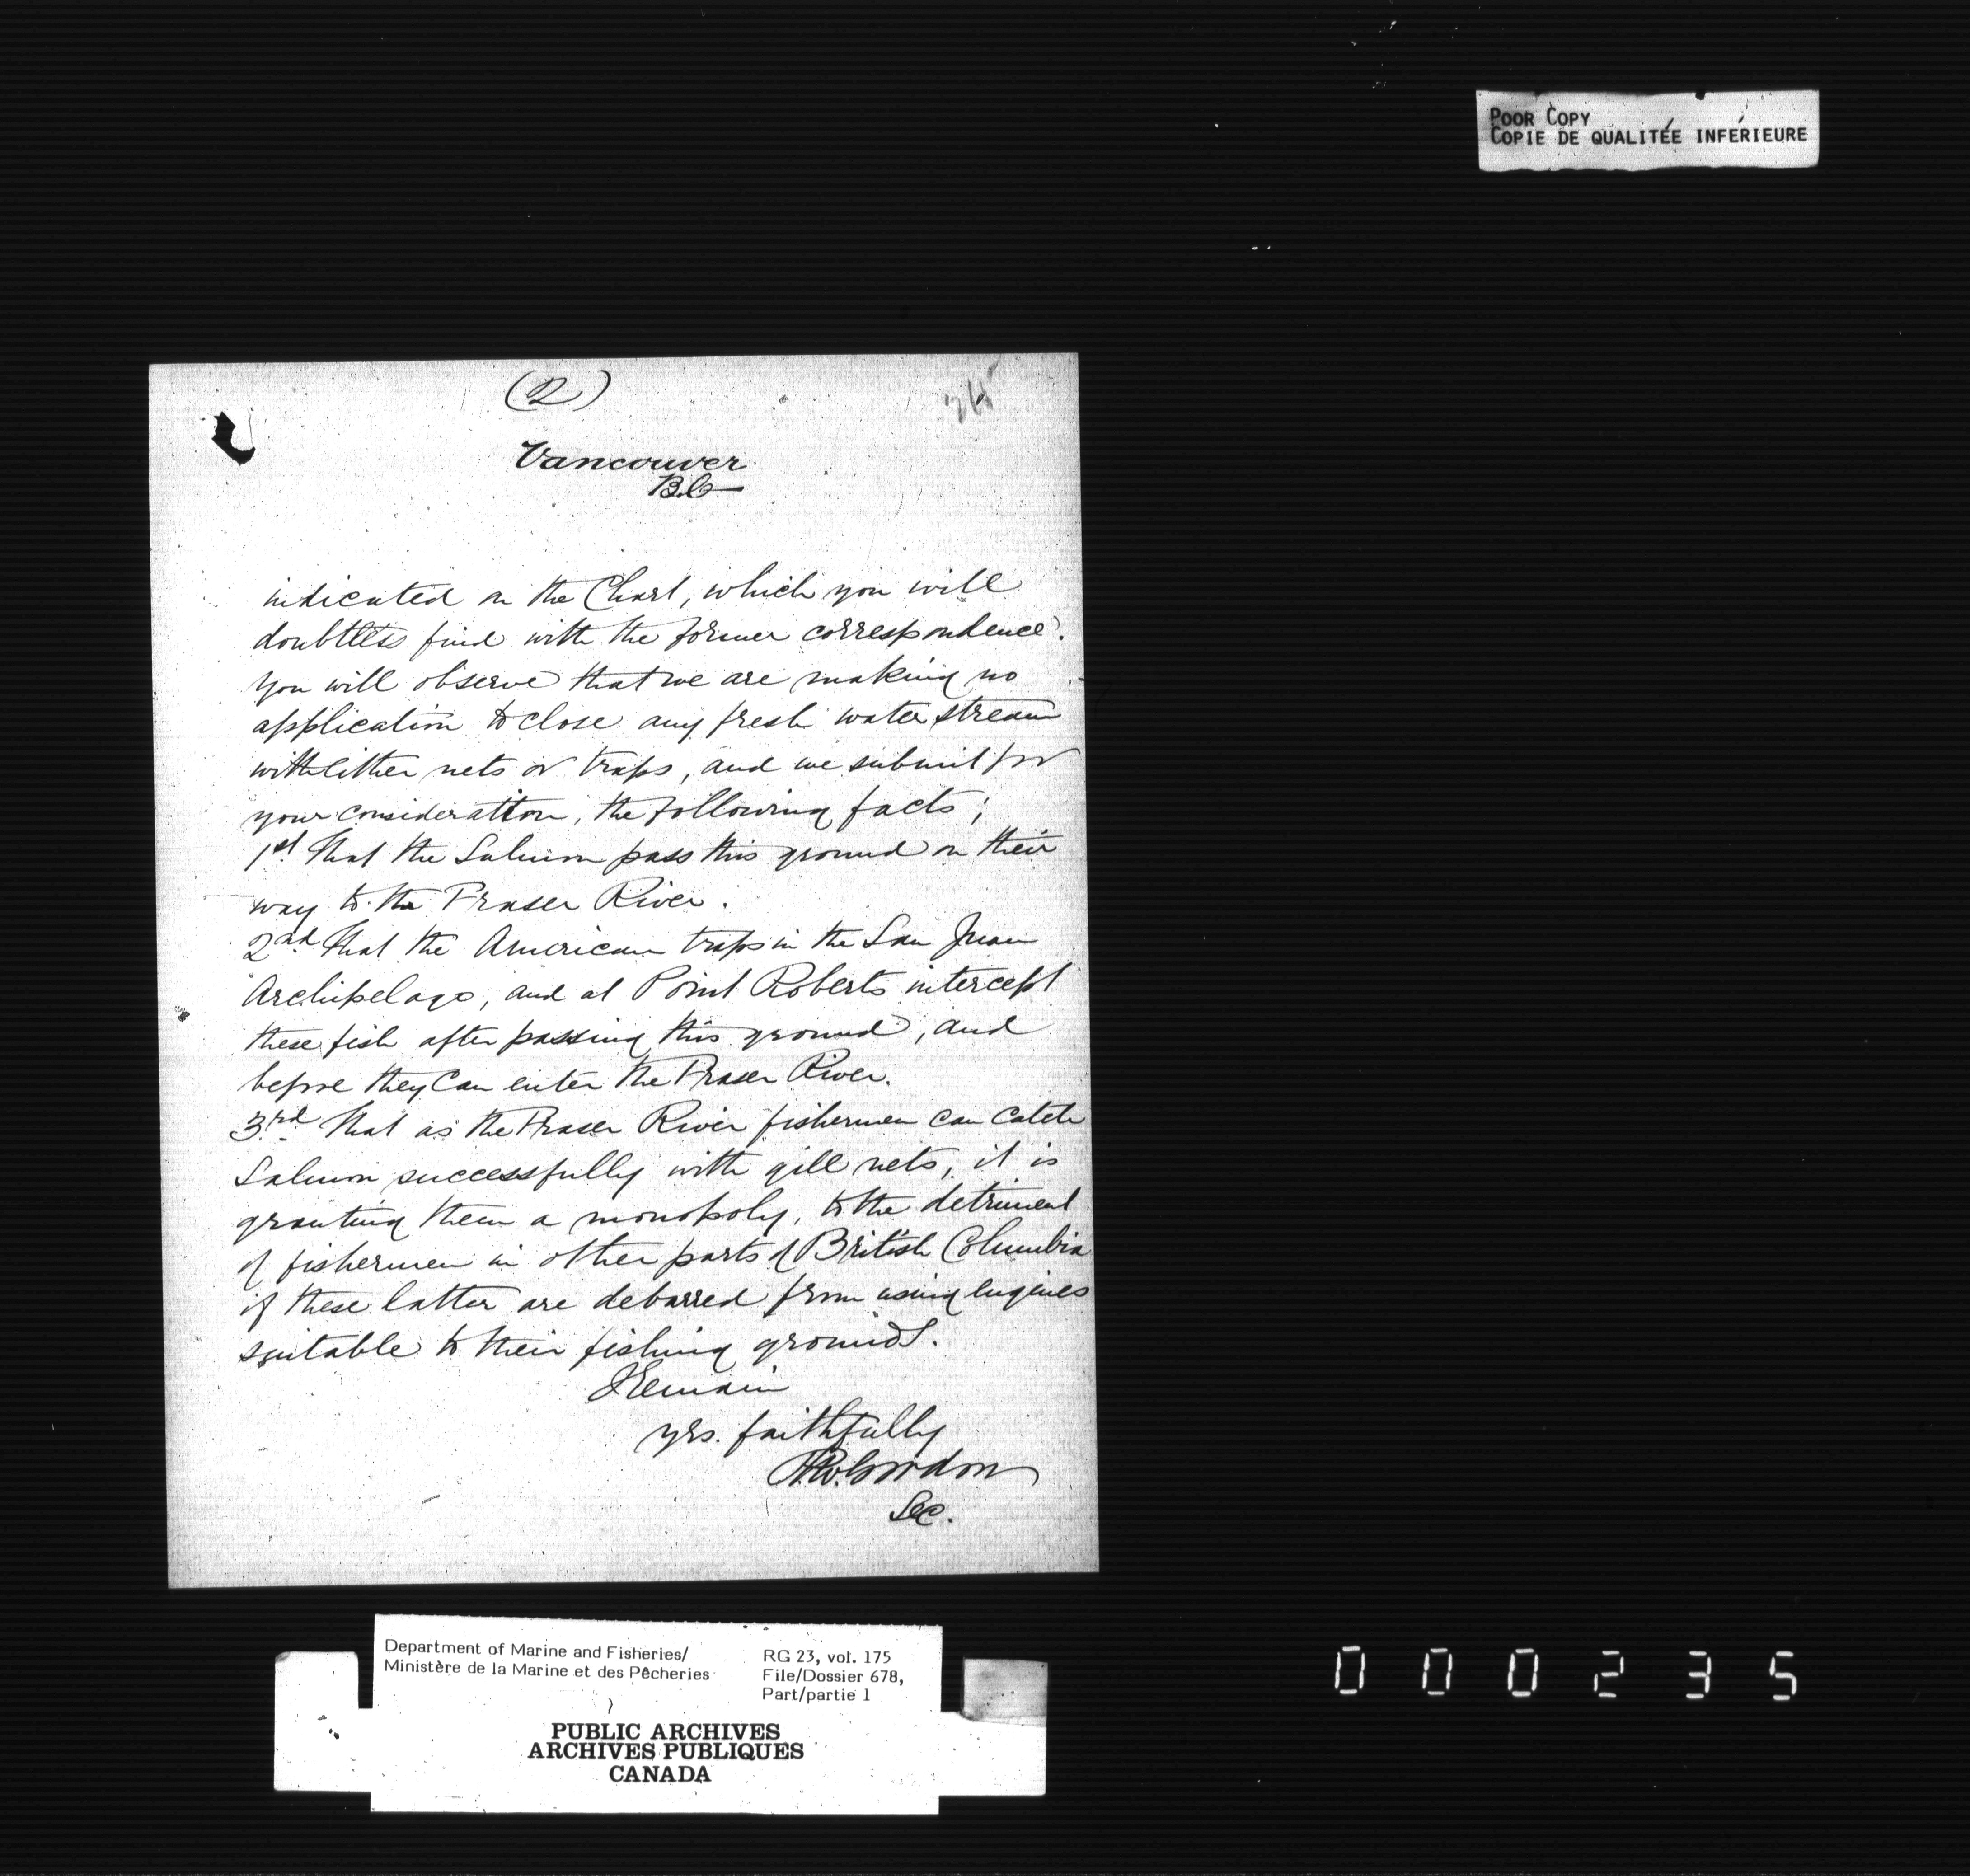 POOR COPY
COPIE DE QUALITÉE INFÉRIEURE
(2)
Vancouver
B.C.
indicated on the Chart, which you will
doubtless find with the former correspondence.
You will observe that we are making no
application to close any fresh water stream
with either nets or traps, and we submit for
your consideration, the following facts;
1st. That the Salmon pass this ground on their
way to the Fraser River.
2nd That the American traps in the San Juan
Archipelago, and at Point Roberts intercept
these fish after passing this ground, and
before they can enter the Fraser River.
3rd That as the Fraser River fishermen can catch
Salmon successfully with gill nets, it is
granting them a monopoly, to the detriment
of fishermen in other parts of British Columbia
if these latter are debarred from using engines
suitable to their fishing grounds.
I remain
yrs. faithfully
Gordon
Sec.
Department of Marine and Fisheries/
Ministère de la Marine et des Pêcheries
RG 23, vol. 175
File/Dossier 678,
Part/partie 1
PUBLIC ARCHIVES
ARCHIVES PUBLIQUES
CANADA
000235